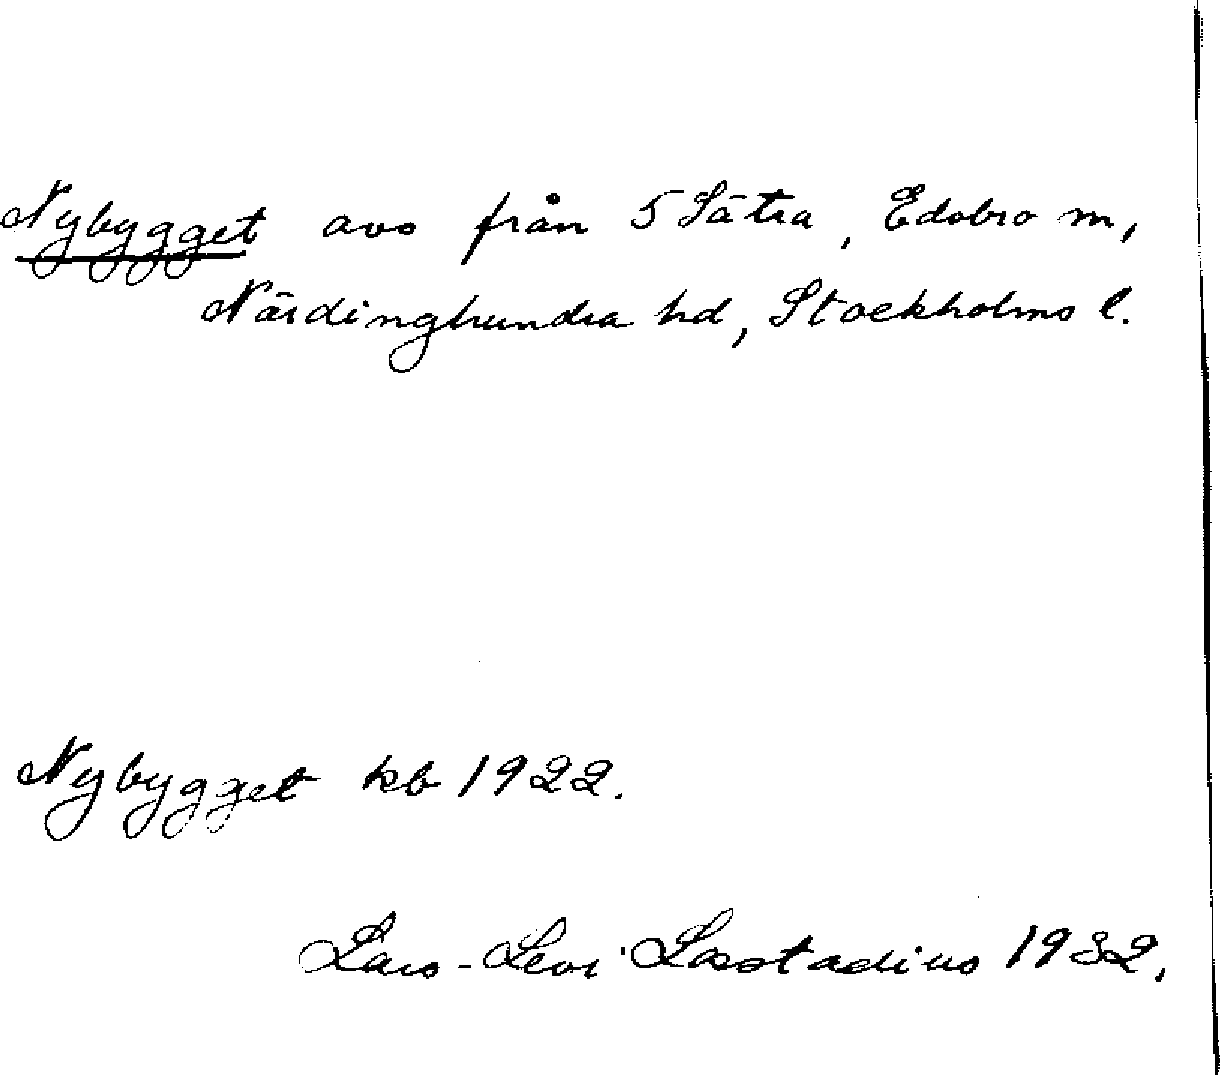 Nybygget avs från 5 Sätra, Edsbro sn,
Närdinghundra hd, Stockholms l.
Nybygget kb 1922.
Lars-Levi Læstadius 1932.